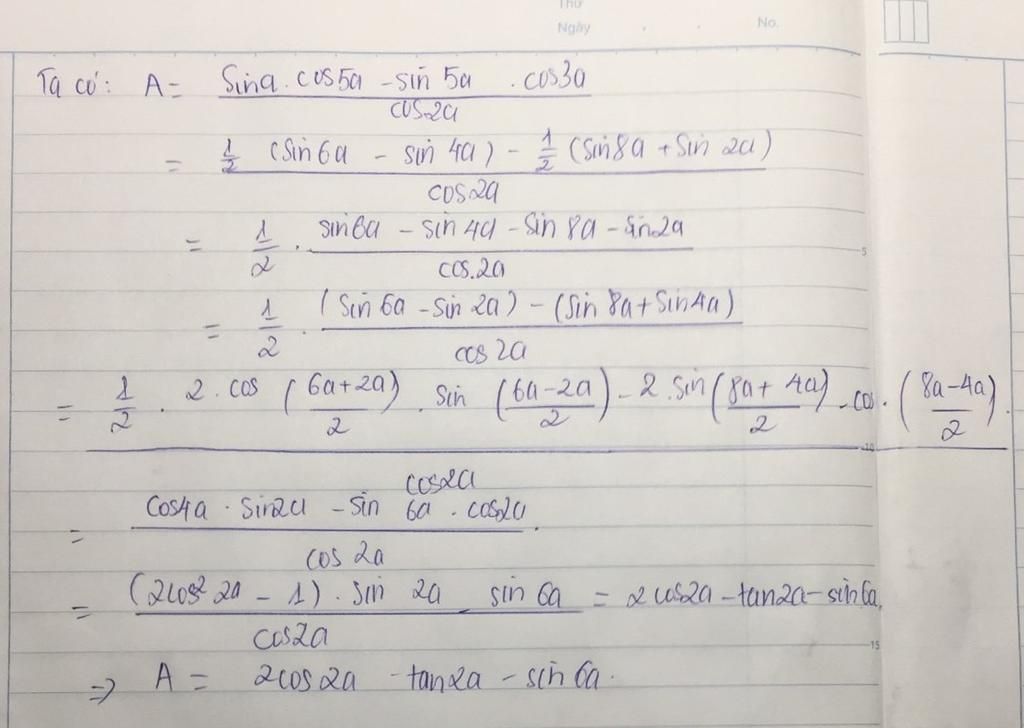 Thứ
Ngày No.
Ta có: A = (sina . cos5a - sin 5a . cos3a) / cos2a
= (1/2 (sin6a - sin 4a) - 1/2 (sin8a + sin 2a)) / cos2a
= 1/2 . (sin6a - sin 4a - sin 8a - sin2a) / cos.2a
= 1/2 . ((sin 6a - sin 2a) - (sin 8a + sin4a)) / cos 2a
= 1/2 . (2 . cos ((6a+2a)/2) . sin ((6a-2a)/2) - 2 . sin ((8a+4a)/2) . cos . ((8a-4a)/2)) / cos2a
= (cos4a . sin2a - sin 6a . cos2a) / cos 2a
= ((2cos² 2a - 1) . sin 2a - sin 6a) / cos2a = 2cos2a - tan2a - sin6a.
=> A = 2cos2a - tan2a - sin 6a.
5
10
15